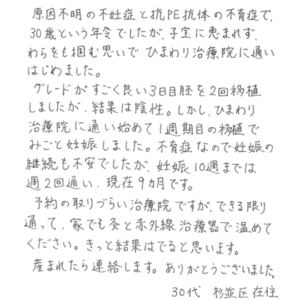 原因不明の不妊症と抗PE抗体の不育症で、
30歳という年令でしたが、子宝に恵まれず、
わらをも掴む思いで ひまわり治療院に通い
はじめました。
グレードがすごく良い3日目胚を2回移植
しましたが、結果は陰性。しかし、ひまわり
治療院に通い始めて1週期目の移植で
みごと妊娠しました。不育症なので妊娠の
継続も不安でしたが、妊娠10週までは
週2回通い、現在9カ月です。
予約の取りづらい治療院ですが、できる限り
通って、家でも灸と赤外線治療器で温めて
ください。きっと結果はでると思います。
産まれたら連絡します。ありがとうございました。
30代 杉並区在住